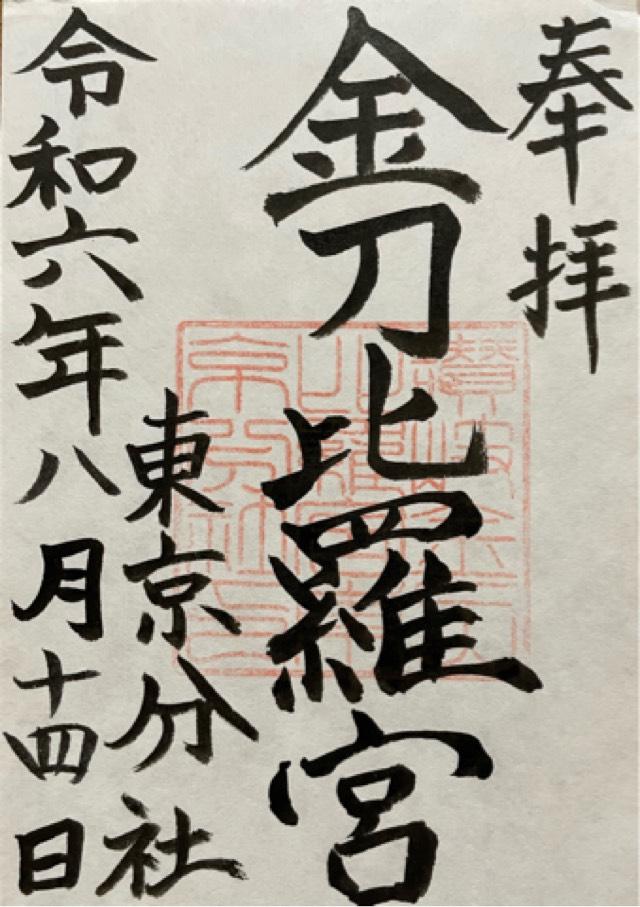 奉拝
金刀比羅宮
東京分社
令和六年八月十四日